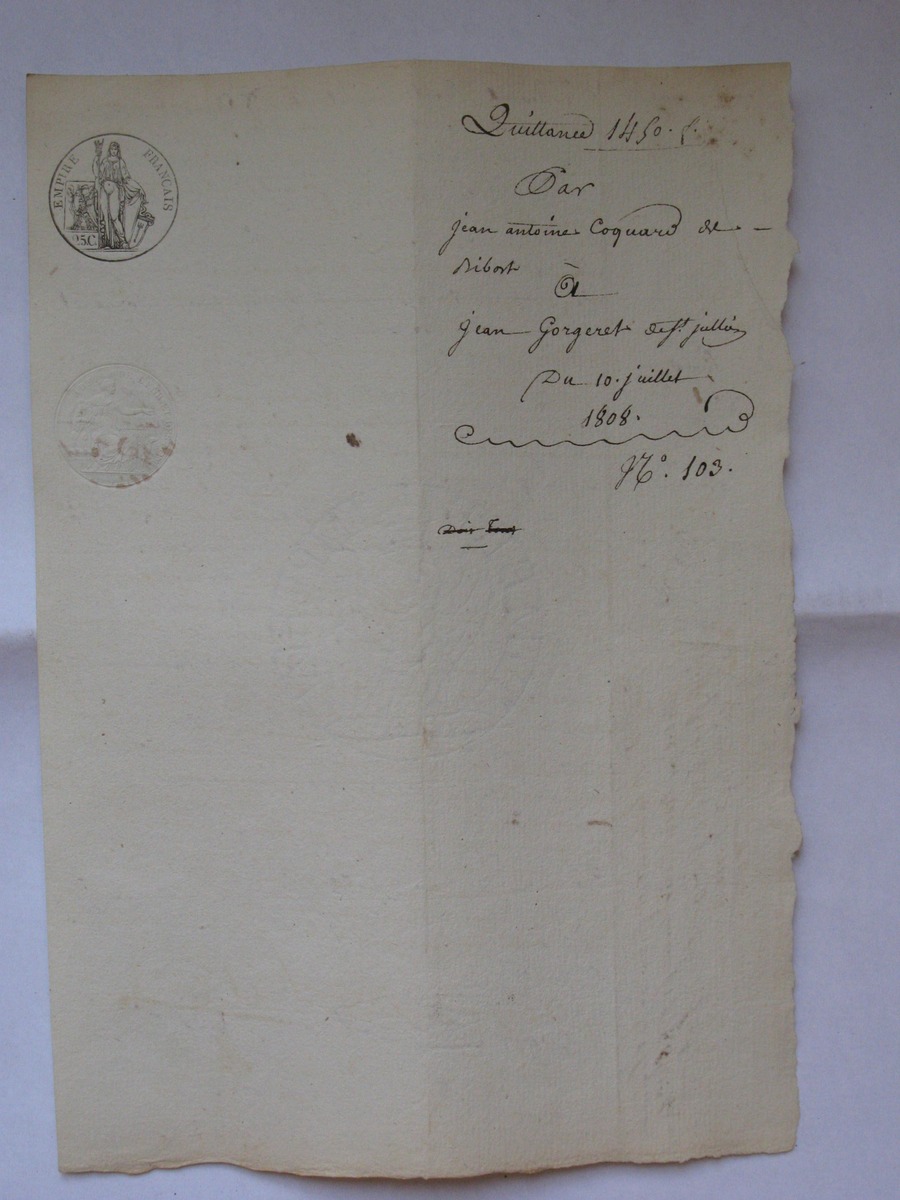 EMPIRE FRANÇAIS
25.C.
Quittance 1450. f.
Par
jean antoine Coquard de
Ribost
À
jean Gorgeret de St. jullien
Du 10. juillet
1808.
N°. 103.